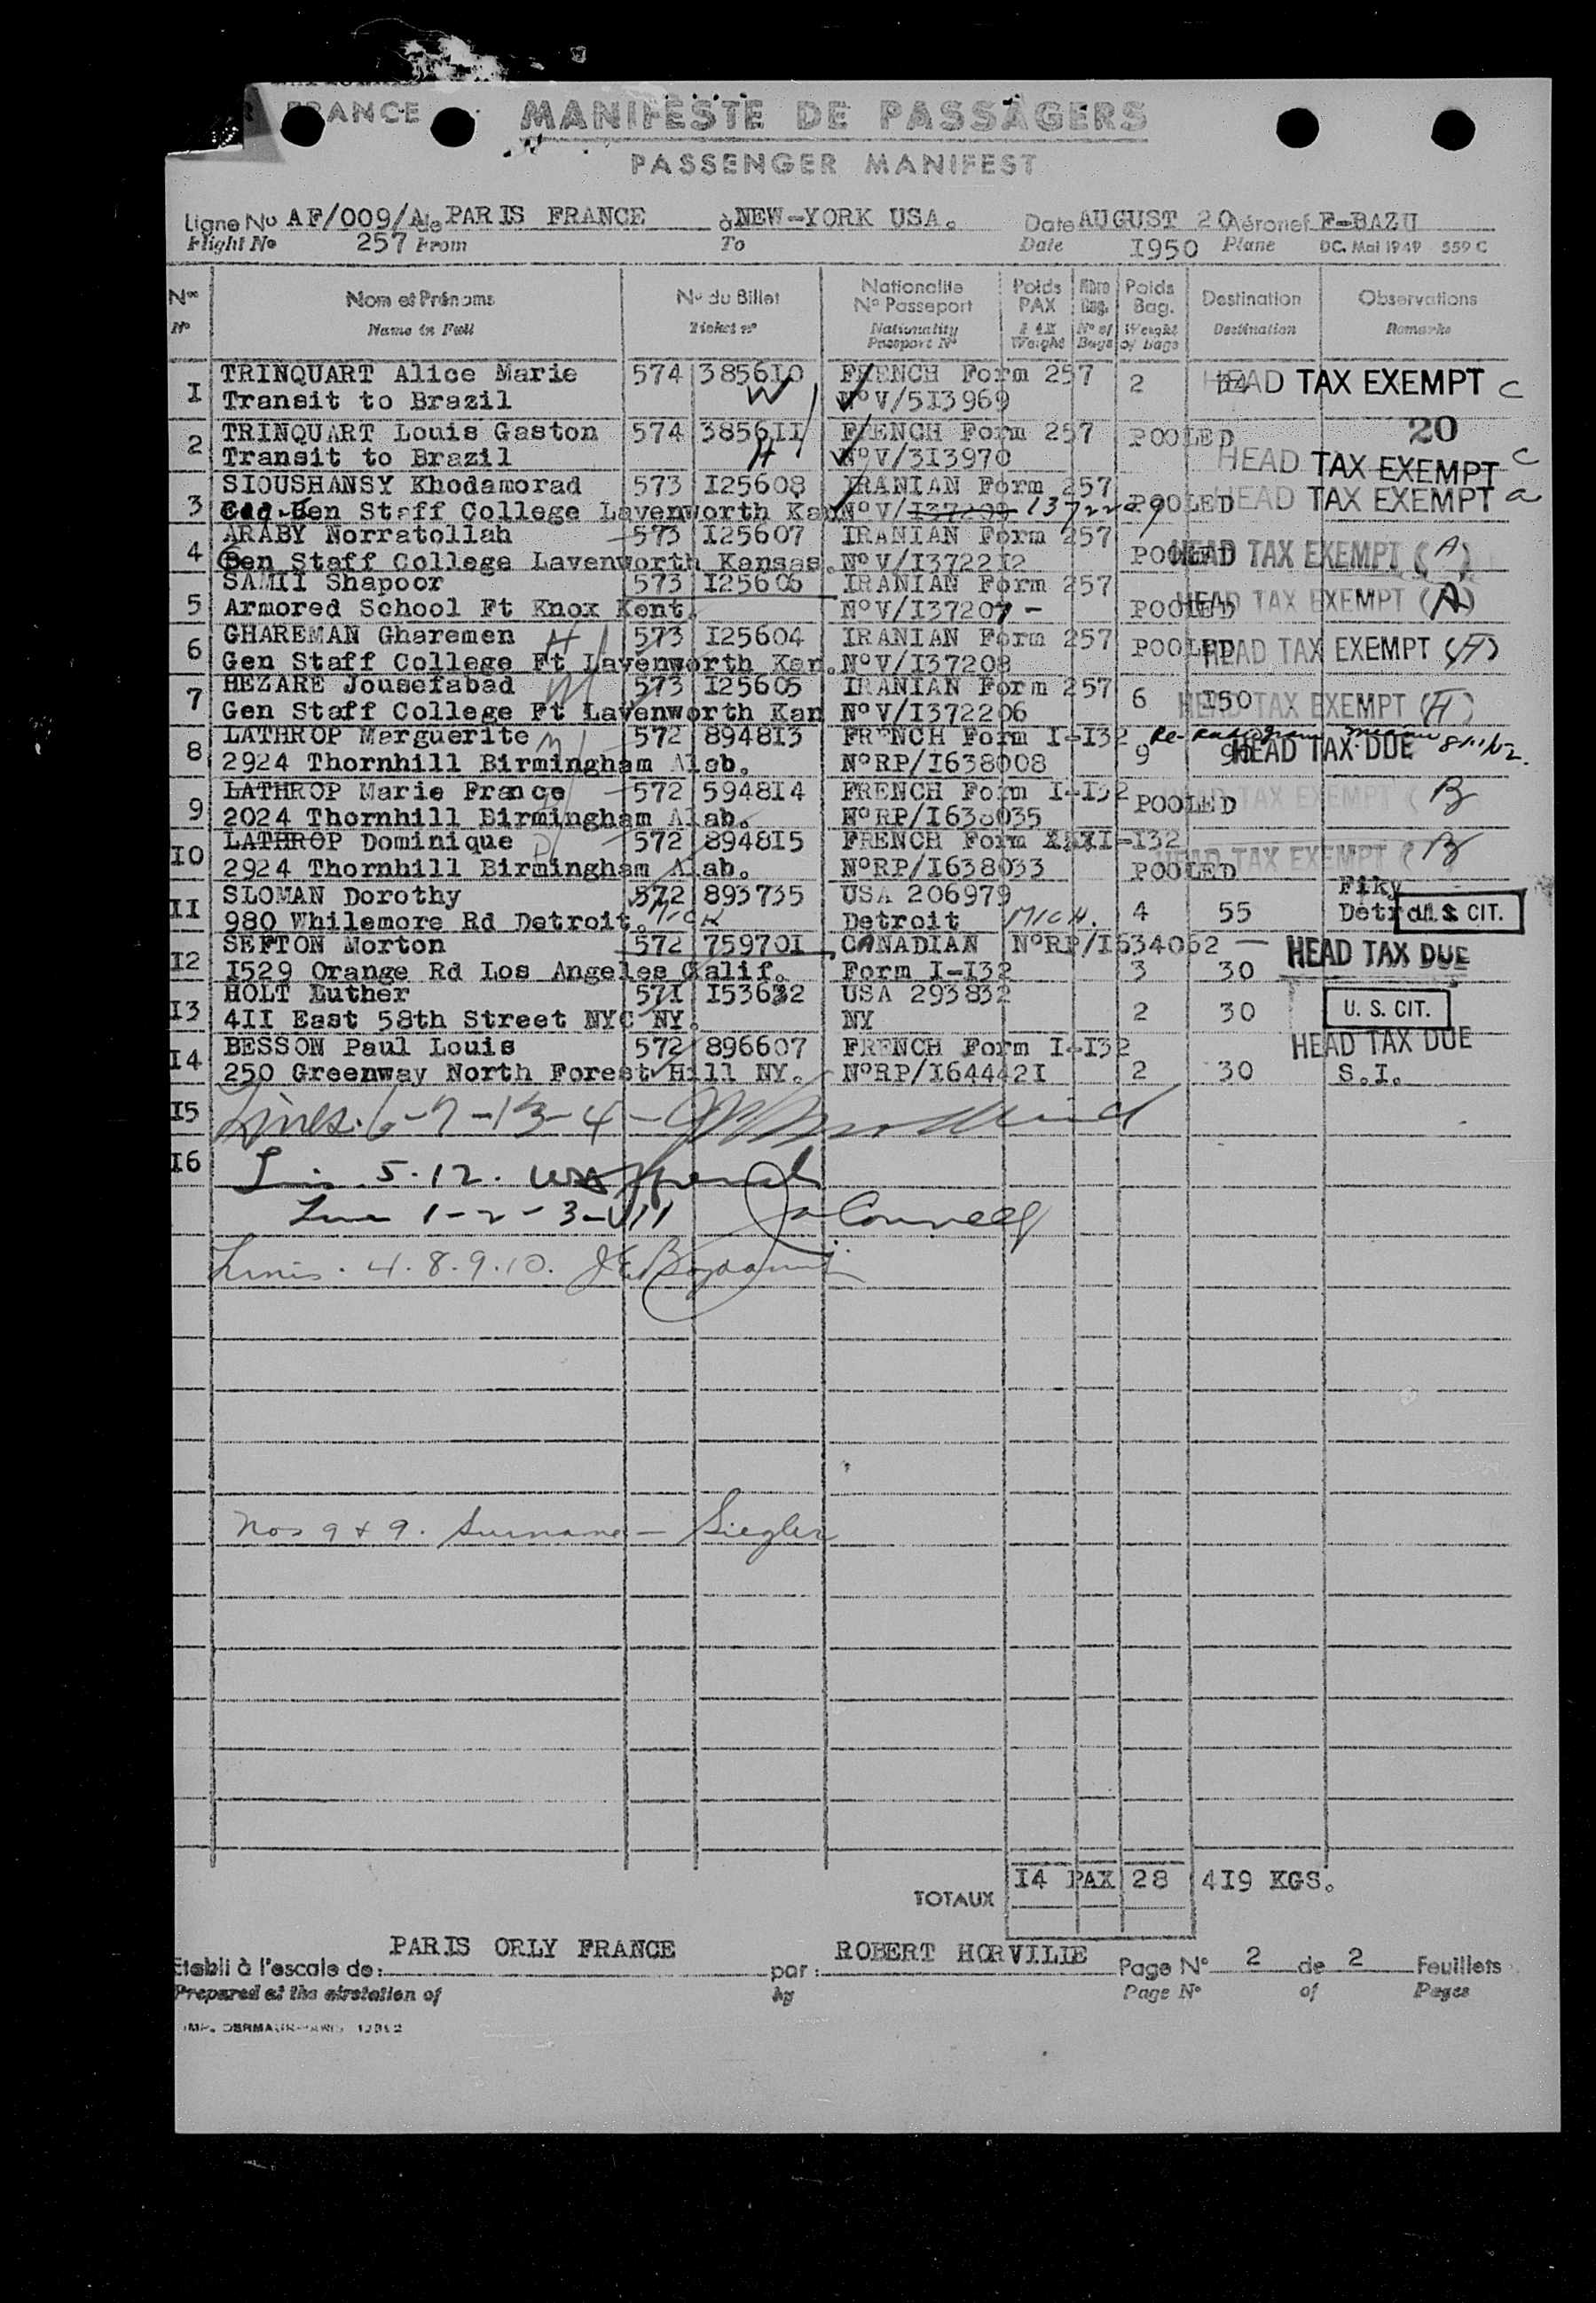 FRANCE
MANIFESTE DE PASSAGERS
PASSENGER MANIFEST
Ligne No AF/009/A de PARIS FRANCE à NEW-YORK USA. Date AUGUST 20 Aéronef F-BAZU
Flight No 257 From To Date 1950 Plane DC. Mai 1949 559 C
Nos Nom et Prénoms No du Billet Nationalité No Passeport Poids PAX Nbre Bag. Poids Bag. Destination Observations
No Name in Full Ticket no Nationality Passport No PAX Weight No of Bags Weight of bags Destination Remarks
I TRINQUART Alice Marie 574 385610 FRENCH Form 257 2 HEAD TAX EXEMPT C
Transit to Brazil W No V/5I3969
2 TRINQUART Louis Gaston 574 3856II FRENCH Form 257 POOLED 20
Transit to Brazil H No V/3I3970 HEAD TAX EXEMPT C
3 SIOUSHANSY Khodamorad 573 I25608 IRANIAN Form 257 POOLED HEAD TAX EXEMPT a
Gen Staff College Lavenworth Kan No V/I37209 1372209
4 ARABY Norratollah 573 I25607 IRANIAN Form 257 POOLED HEAD TAX EXEMPT (A)
Gen Staff College Lavenworth Kansas. No V/I3722I2
5 SAMII Shapoor 573 I25606 IRANIAN Form 257 POOLED HEAD TAX EXEMPT (A)
Armored School Ft Knox Kent. No V/I37207 -
6 GHAREMAN Gharemen H 573 I25604 IRANIAN Form 257 POOLED HEAD TAX EXEMPT (A)
Gen Staff College Ft Lavenworth Kan. No V/I37208
7 HEZARE Jousefabad M 573 I25605 IRANIAN Form 257 6 I50 HEAD TAX EXEMPT (A)
Gen Staff College Ft Lavenworth Kan No V/I372206
8 LATHROP Marguerite M 572 8948I3 FRENCH Form I-I32 9 HEAD TAX DUE
2924 Thornhill Birmingham Alab. No RP/I638008
9 LATHROP Marie France 572 5948I4 FRENCH Form I-I32 POOLED HEAD TAX EXEMPT ( B
2024 Thornhill Birmingham Alab. No RP/I638035
I0 LATHROP Dominique 572 8948I5 FRENCH Form I-I32 POOLED HEAD TAX EXEMPT ( B
2924 Thornhill Birmingham Alab. No RP/I638033
II SLOMAN Dorothy 572 893735 USA 206979 4 55
980 Whilemore Rd Detroit. Mich Detroit MICH. U.S. CIT.
I2 SEFTON Morton 572 75970I CANADIAN No RP/I634062 HEAD TAX DUE
I529 Orange Rd Los Angeles Calif. Form I-I32 3 30
I3 HOLT Luther 57I I53632 USA 293832 2 30 U. S. CIT.
4II East 58th Street NYC NY. NY
I4 BESSON Paul Louis 572 896607 FRENCH Form I-I32 HEAD TAX DUE
250 Greenway North Forest Hill NY. No RP/I64442I 2 30 S.I.
I5 Lines. 6-7-13-4-
I6 Lines 5.12.
Line 1-2-3-11 O'Connell
Lines. 4.8.9.10.
Nos 9 & 9. Surname - Siegler
TOTAUX I4 PAX 28 4I9 KGS.
Etabli à l'escale de: PARIS ORLY FRANCE par: ROBERT HORVILLE Page No 2 de 2 Feuillets
Prepared at the airstation of by Page No of Pages